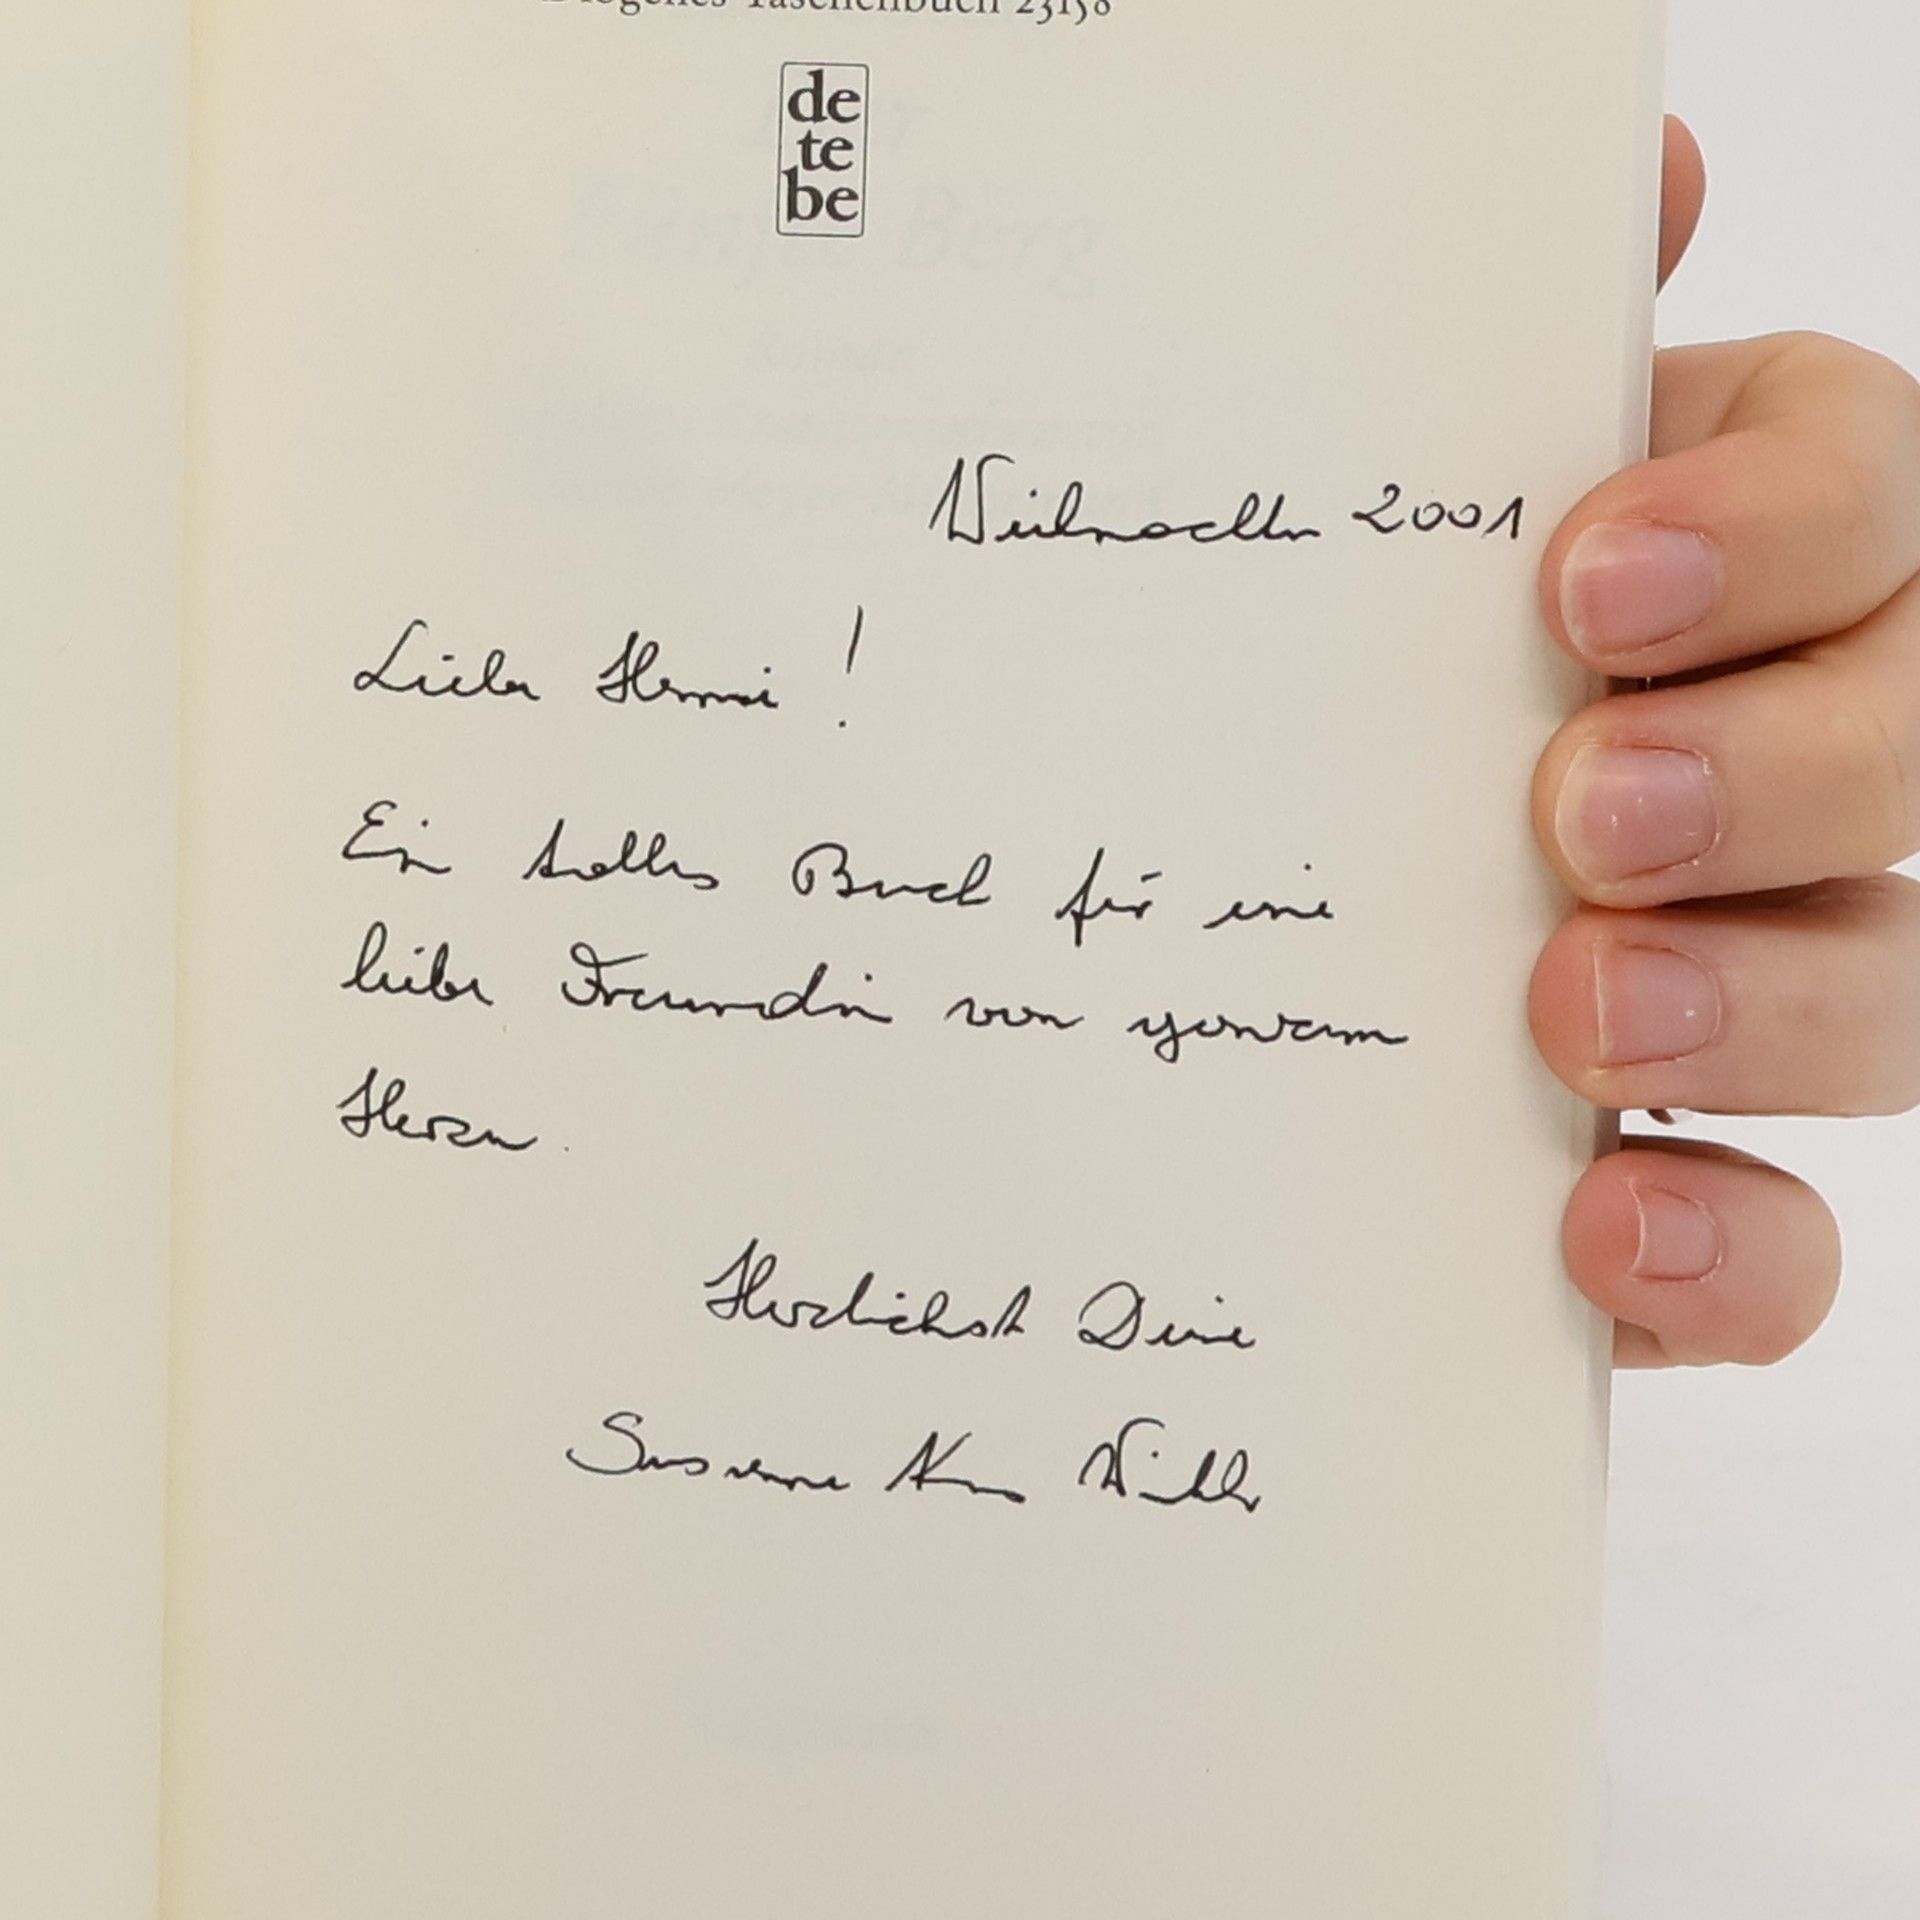 Diogenes Taschenbuch 23158
de
te
be
Weihnachten 2001
Liebe Hermi!
Ein tolles Buch für eine
liebe Freundin von ganzem
Herzen.
Herzlichst Deine
Susanne